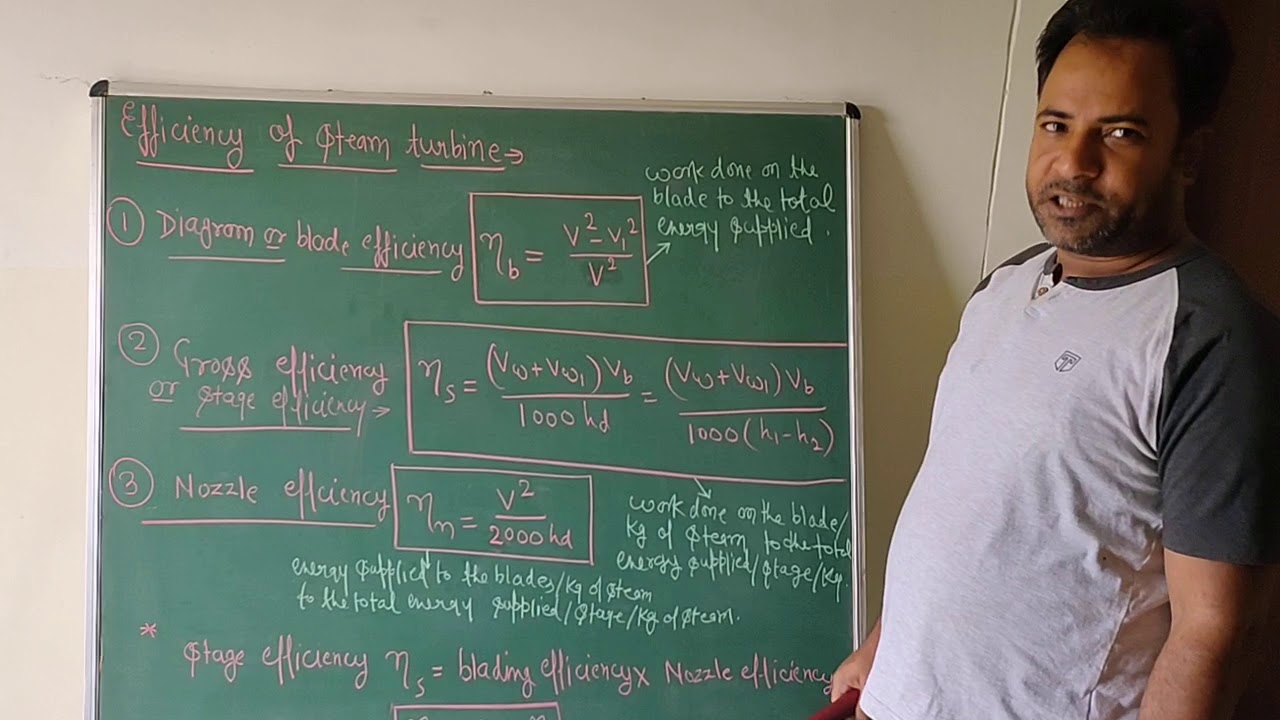 Efficiency of steam turbine→
① Diagram or blade efficiency
η_b = (V² - V₁²) / V²
work done on the
blade to the total
energy supplied.
② Gross efficiency
or stage efficiency→
η_s = (Vω + Vω₁) V_b / 1000 hd = (Vω + Vω₁) V_b / 1000 (h₁ - h₂)
work done on the blade/
kg of steam to the total
energy supplied/stage/kg.
③ Nozzle effciency
η_n = V² / 2000 hd
energy supplied to the blades/kg of steam
to the total energy supplied/stage/kg of steam.
* Stage efficiency η_s = blading efficiency x Nozzle efficiency